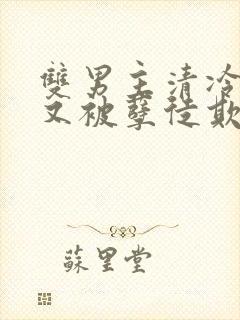 雙男主清冷
又被孽徒欺
蘇里堂